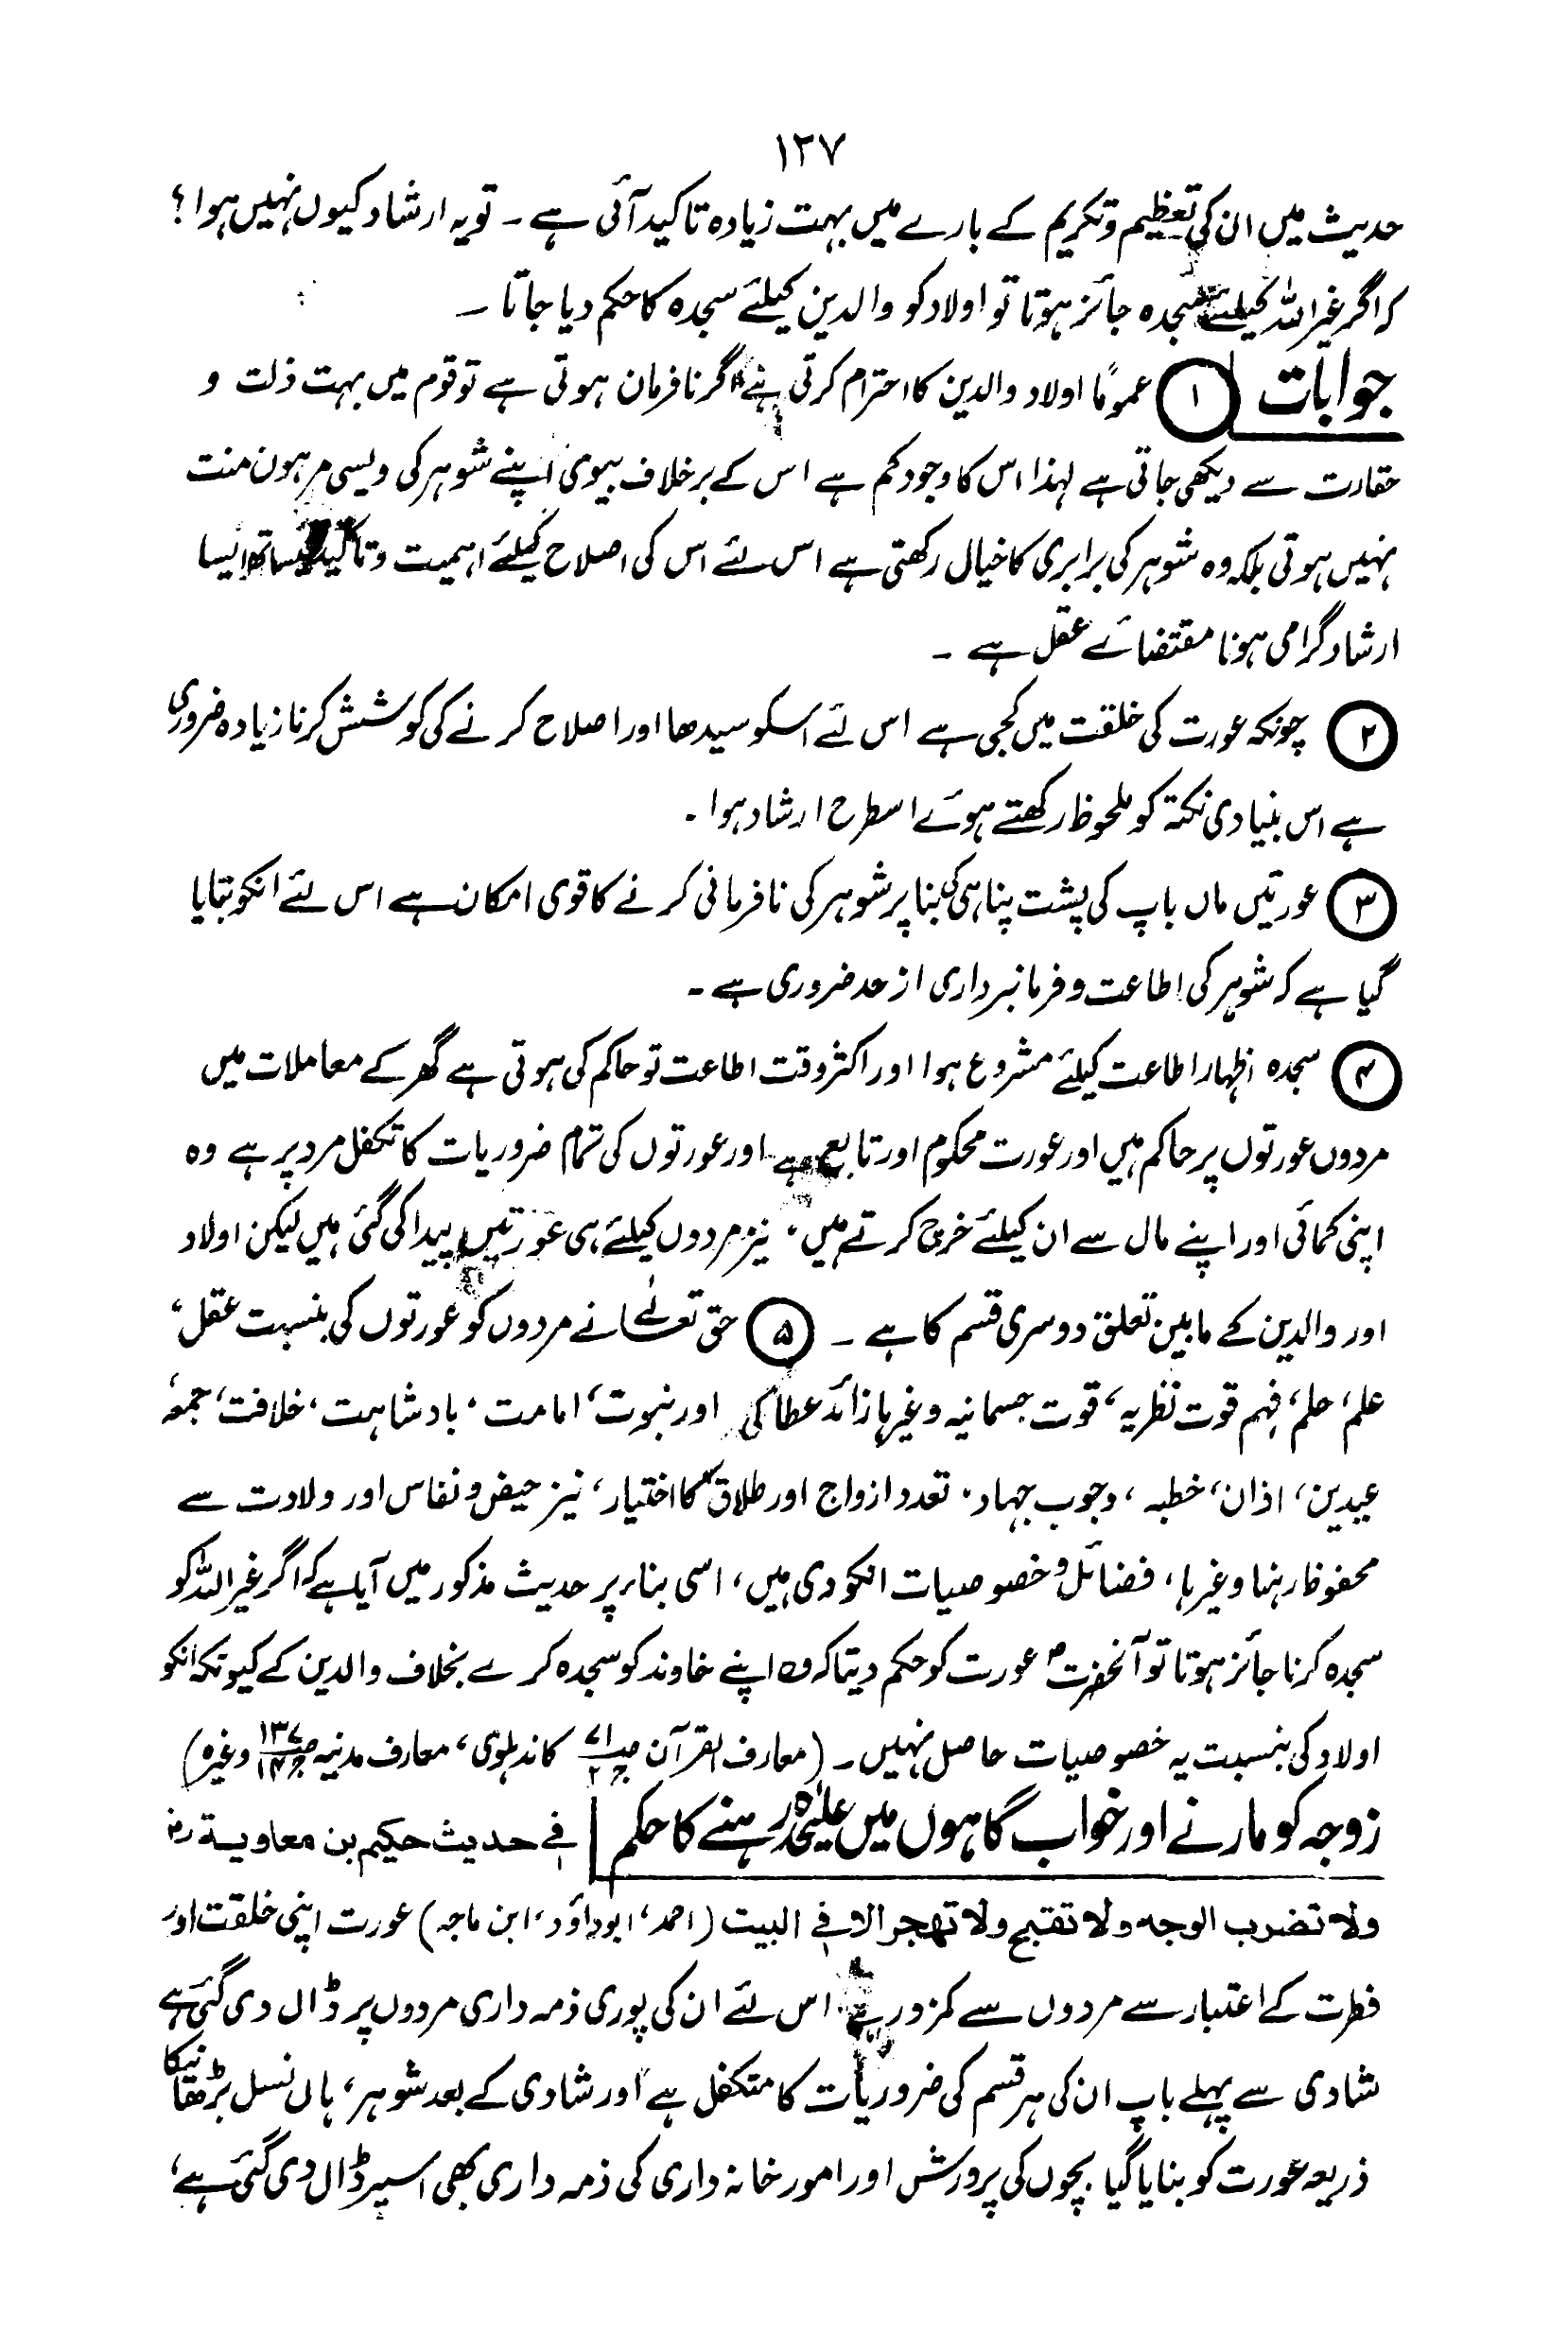 ۱۲۷
حدیث میں ان کی تعظیم وتکریم کے بارے میں بہت زیادہ تاکید آئی ہے ۔ تو یہ ارشاد کیوں نہیں ہوا ؟
کہ اگر غیر اللہ کیلئے سجدہ جائز ہوتا تو اولاد کو والدین کیلئے سجدہ کا حکم دیا جاتا ۔
جوابات ۱ عموماً اولاد والدین کا احترام کرتی ہے اگر نافرمان ہوتی ہے تو قوم میں بہت ذلت و
حقارت سے دیکھی جاتی ہے لہذا اس کا وجود کم ہے اس کے برخلاف بیوی اپنے شوہر کی ویسی مرہون منت
نہیں ہوتی بلکہ وہ شوہر کی برابری کا خیال رکھتی ہے اس لئے اس کی اصلاح کیلئے اہمیت وتاکید کیساتھ ایسا
ارشاد گرامی ہونا مقتضائے عقل ہے ۔
۲ چونکہ عورت کی خلقت میں کجی ہے اس لئے اسکو سیدھا اور اصلاح کرنے کی کوشش کرنا زیادہ ضروری
ہے اس بنیادی نکتہ کو ملحوظ رکھتے ہوئے اسطرح ارشاد ہوا ۔
۳ عورتیں ماں باپ کی پشت پناہی کی بنا پر شوہر کی نافرمانی کرنے کا قوی امکان ہے اس لئے انکو بتایا
گیا ہے کہ شوہر کی اطاعت و فرمانبرداری از حد ضروری ہے ۔
۴ سجدہ اظہار اطاعت کیلئے مشروع ہوا اور اکثر وقت اطاعت تو حاکم کی ہوتی ہے گھر کے معاملات میں
مردوں عورتوں پر حاکم ہیں اور عورت محکوم اور تابع ہے اور عورتوں کی تمام ضروریات کا تکفل مرد پر ہے وہ
اپنی کمائی اور اپنے مال سے ان کیلئے خرچ کرتے ہیں، نیز مردوں کیلئے ہی عورتیں پیدا کی گئی ہیں لیکن اولاد
اور والدین کے مابین تعلق دوسری قسم کا ہے ۔ ۵ حق تعالیٰ نے مردوں کو عورتوں کی بنسبت عقل،
علم، حلم، فہم قوت نظریہ، قوت جسمانیہ وغیرہا زائد عطا کی اور نبوت، امامت، بادشاہت، خلافت، جمعہ،
عیدین، اذان، خطبہ، وجوب جہاد، تعدد ازواج اور طلاق کا اختیار، نیز حیض و نفاس اور ولادت سے
محفوظ رہنا وغیرہا، فضائل و خصوصیات انکو دی ہیں، اسی بناء پر حدیث مذکور میں آیا ہے کہ اگر غیر اللہ کو
سجدہ کرنا جائز ہوتا تو آنحضرت ؐ عورت کو حکم دیتا کہ وہ اپنے خاوند کو سجدہ کرے بخلاف والدین کے کیونکہ انکو
اولاد کی بنسبت یہ خصوصیات حاصل نہیں ۔ (معارف القرآن کاندہلوی، معارف مدنیہ وغیرہ)
زوجہ کو مارنے اور خواب گاہوں میں علیٰحدہ رہنے کا حکم فی حدیث حکیم بن معاویة رض
ولا تضرب الوجه ولا تقبح ولا تهجر الا فی البیت (احمد، ابوداؤد، ابن ماجہ) عورت اپنی خلقت اور
فطرت کے اعتبار سے مردوں سے کمزور ہے اس لئے ان کی پوری ذمہ داری مردوں پر ڈال دی گئی ہے
شادی سے پہلے باپ ان کی ہر قسم کی ضروریات کا متکفل ہے اور شادی کے بعد شوہر، ہاں نسل بڑھانیکا
ذریعہ عورت کو بنایا گیا بچوں کی پرورش اور امور خانہ داری کی ذمہ داری بھی اسپر ڈال دی گئی ہے،